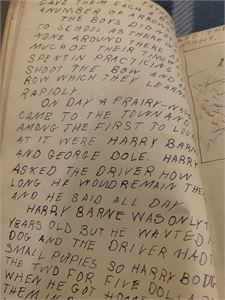 GAVE THEM EACH A
A NUMBER OF ARROWS
THE BOYS DID NOT
TO SCHOOL AS THERE W
NONE AROUND THERE
MUCH OF THEIR TIME W
SPENT IN PRACTICING
SHOOT THE BOW AND
ROW WHICH THEY LEARN
RAPIDLY.
ON DAY A PRAIRY-WAG
CAME TO THE TOWN AND
AMONG THE FIRST TO LOO
AT IT WERE HARRY BARN
AND GEORGE DOLE. HARRY
ASKED THE DRIVER HOW
LONG HE WOULD REMAIN THE
AND HE SAID ALL DAY
HARRY BARNE WAS ONLY
YEARS OLD BUT HE WANTED
DOG AND THE DRIVER HAD
SMALL PUPPIES SO HARRY BO
THE TWO FOR FIVE DOL
WHEN HE GOT HOME
THEM IN